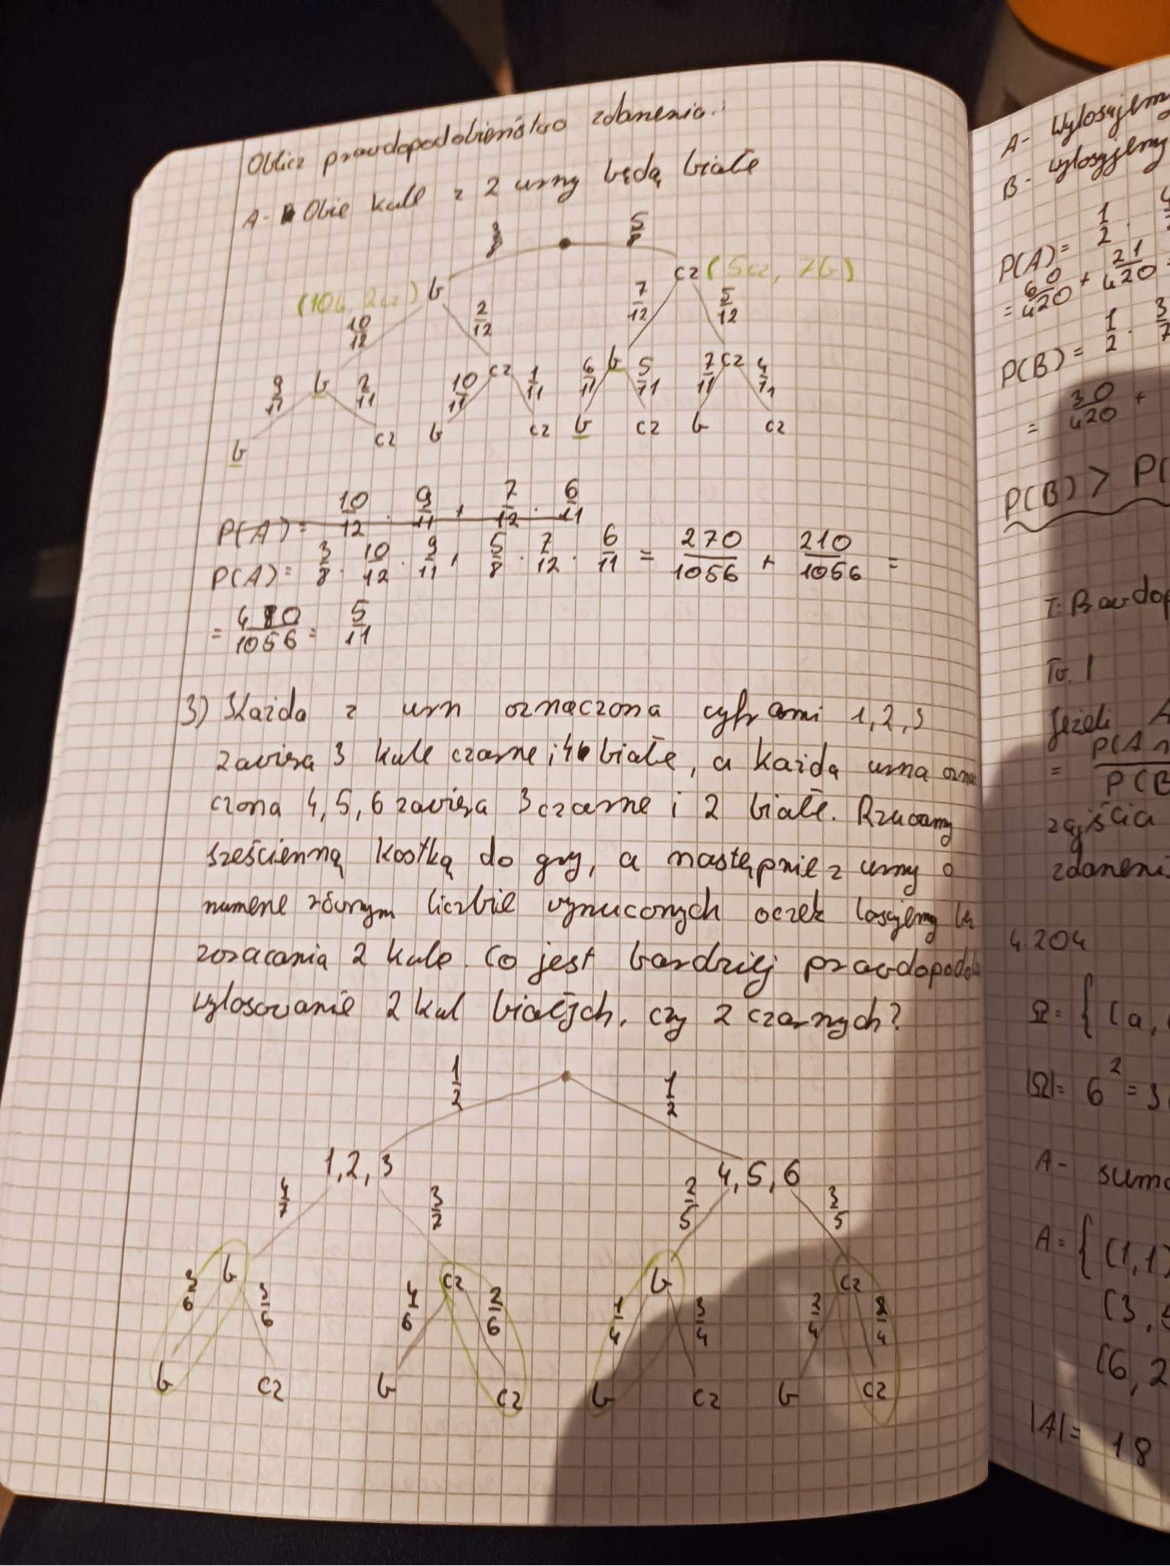 Oblicz prawdopodobieństwo zdarzenia:
A- Obie kule z 2 urny będą białe
3/8 5/8
(10b, 2cz) b cz (5cz, 7b)
10/12 2/12 7/12 5/12
b cz b cz
9/11 2/11 10/11 1/11 6/11 5/11 7/11 4/11
b cz b cz b cz b cz
P(A)= 10/12 · 9/11 + 7/12 · 6/11
P(A)= 3/8 · 10/12 · 9/11 + 5/8 · 7/12 · 6/11 = 270/1056 + 210/1056 =
= 480/1056 = 5/11
3) Każda z urn oznaczona cyframi 1,2,3
zawiera 3 kule czarne i 4 białe, a każda urna ozna
czona 4,5,6 zawiera 3 czarne i 2 białe. Rzucamy
sześcienną kostką do gry, a następnie z urny o
numerze równym liczbie wyrzuconych oczek losujemy
zwracania 2 kule. Co jest bardziej prawdopodob
wylosowanie 2 kul białych, czy 2 czarnych?
1/2 1/2
1,2,3 4,5,6
4/7 3/7 2/5 3/5
b cz b cz
3/6 3/6 4/6 2/6 1/4 3/4 2/4 2/4
b cz b cz b cz b cz
A- Wylosujemy
B- wylosujemy
P(A)= 1/2 ·
= 60/420 + 21/420
P(B)= 1/2 · 3/7
= 30/420 +
P(B) > P(
T: Prawdop
Tw. 1
Jeżeli A
= P(A ∩ / P(B
zajścia
zdarzeni
4.204
Ω= { (a,
|Ω|= 6² = 3
A- suma
A= { (1,1)
(3,
(6, 2
|A|= 18